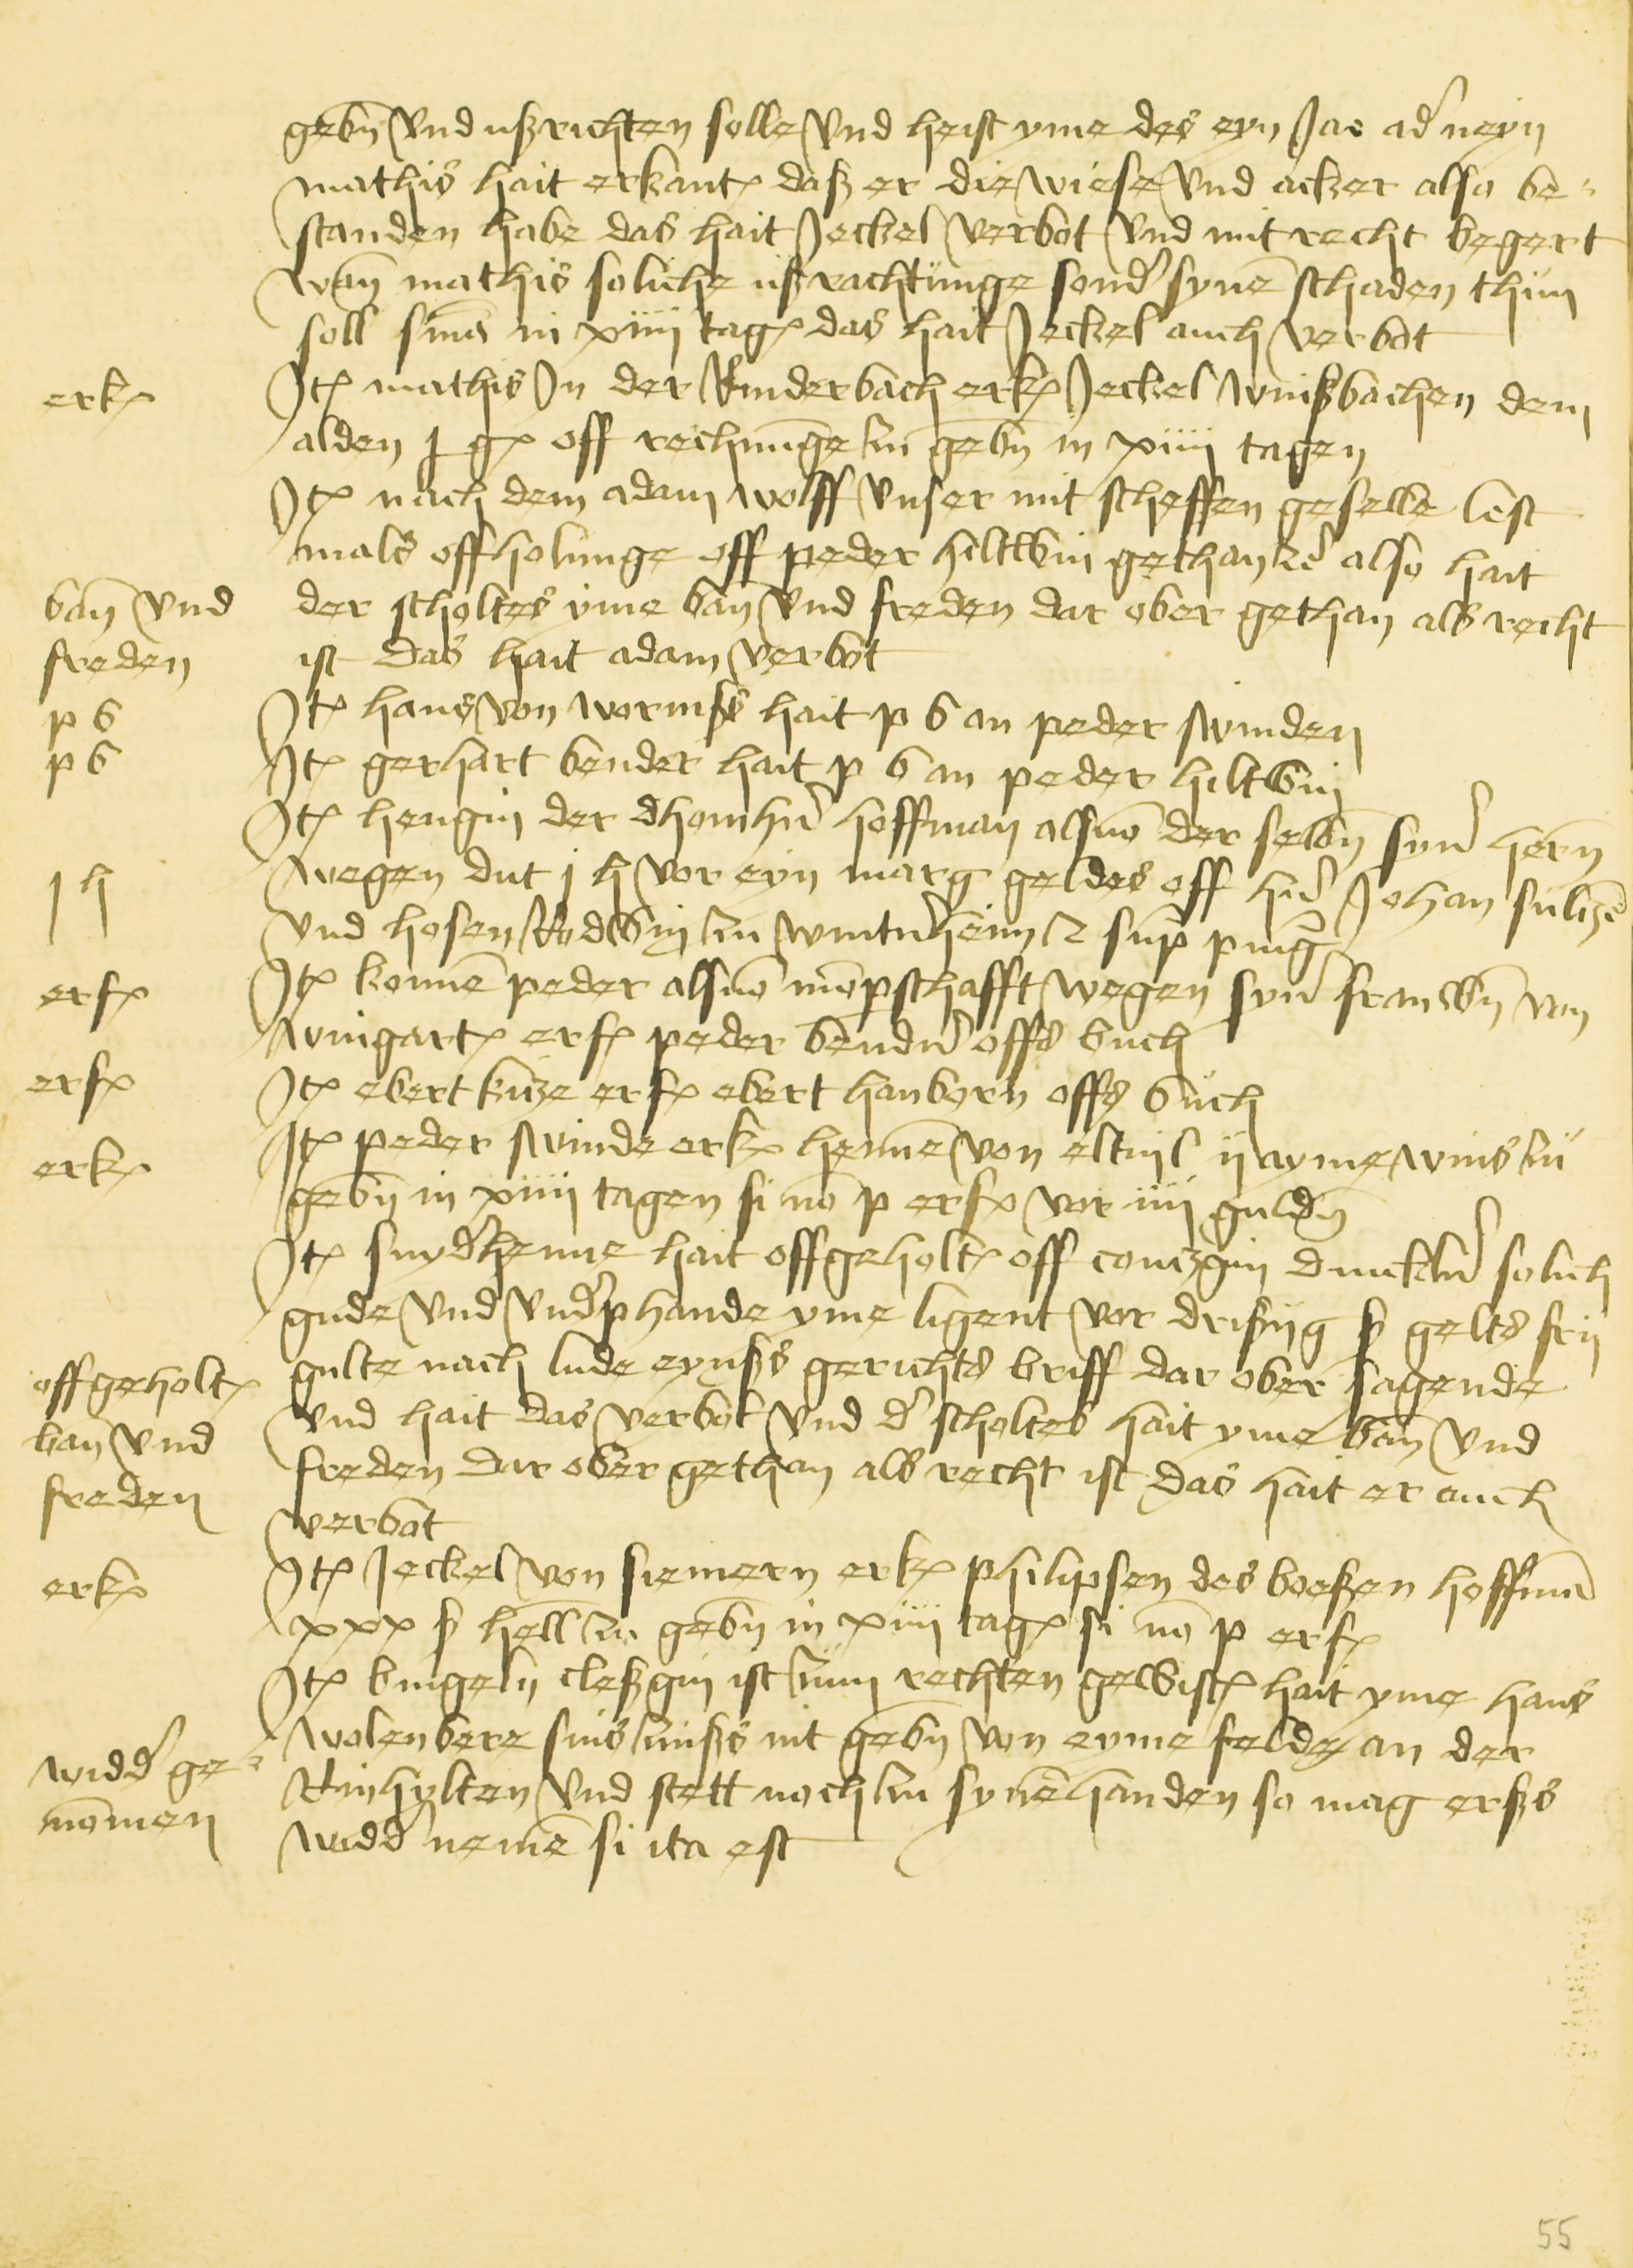 gebn̄ vnd ußrichten solle vnd heist yme des eyn Jae ad' neyn
mathis hait erkant daß er die wiese vnd acker also be-
standen habe das hait Jeckel verbot vnd mit recht begert
wan̄ mathis soliche ußrachtünge sond' synē schaden thün
soll sm̄a in xiiii tag das hait Jeckel auch verbot
erk
Jt mathis In der Rinderbach erk Jeckel winßbachen dem
alden j g off rechnūge zu gebn̄ in xiiii tagen
Jt nach dem adam wolff vnser mit scheffen geselle lest
mals offholunge off peder hiltwin gethan zc also hait
ban̄ vnd
freden
der scholtes yme ban̄ vnd freden dar ober gethan als recht
ist das hait adam verbot
p b
Jt hans von wormßs hait p b an peder swinden
p b
Jt gerhart bender hait p b an peder hiltwin
Jt hengin der dhomhr̄ hoffman als vō der selbn̄ syn' hern̄
j h
wegen dut j h vor eyn marg geldes off hr̄ Johan sülizē
vnd hosen Rodwin zu wintr̄heim z sup̄ pīg
erf
Jt kōmē peder als vō mōpschafft wegen syn' frauwn̄ von
wingart erf peder bendr̄ offs buch
erf
Jt ebert küze erf ebert hanborn offs buch
erk
Jt peder swinde erk hennē von eltuil ij ayme wins zu
gebn̄ in xiiii tagen si nō p erf vor iiii guldn̄
Jt snyd'henne hait offgeholt off conczgin duncklr̄ solich
gude vnd vnd'phande yme ligent vor drißijg ß gelts frij
offgeholt
ban̄ vnd
freden
gulte nach lude eynßs gerichts briff dar ober sagende
vnd hait das verbot vnd d' scholtes hait yme ban̄ vnd
freden dar ober gethan als recht ist das hait er auch
verbot
erk
Jt Jeckel von siemern erk philipsen des boeßen hoffmā
xxx ß hell zu gebn̄ in xiiii tag si nō p erf
Jt bingeln cleßgin ist zum rechten gewist hait yme hans
widd' ge-
nōmen
wolenbere sins zinßs nit gebn̄ von eyme felde an der
Rinhylten vnd stett noch zu synē handen so mag erßs
widd' nemē si ita est
55